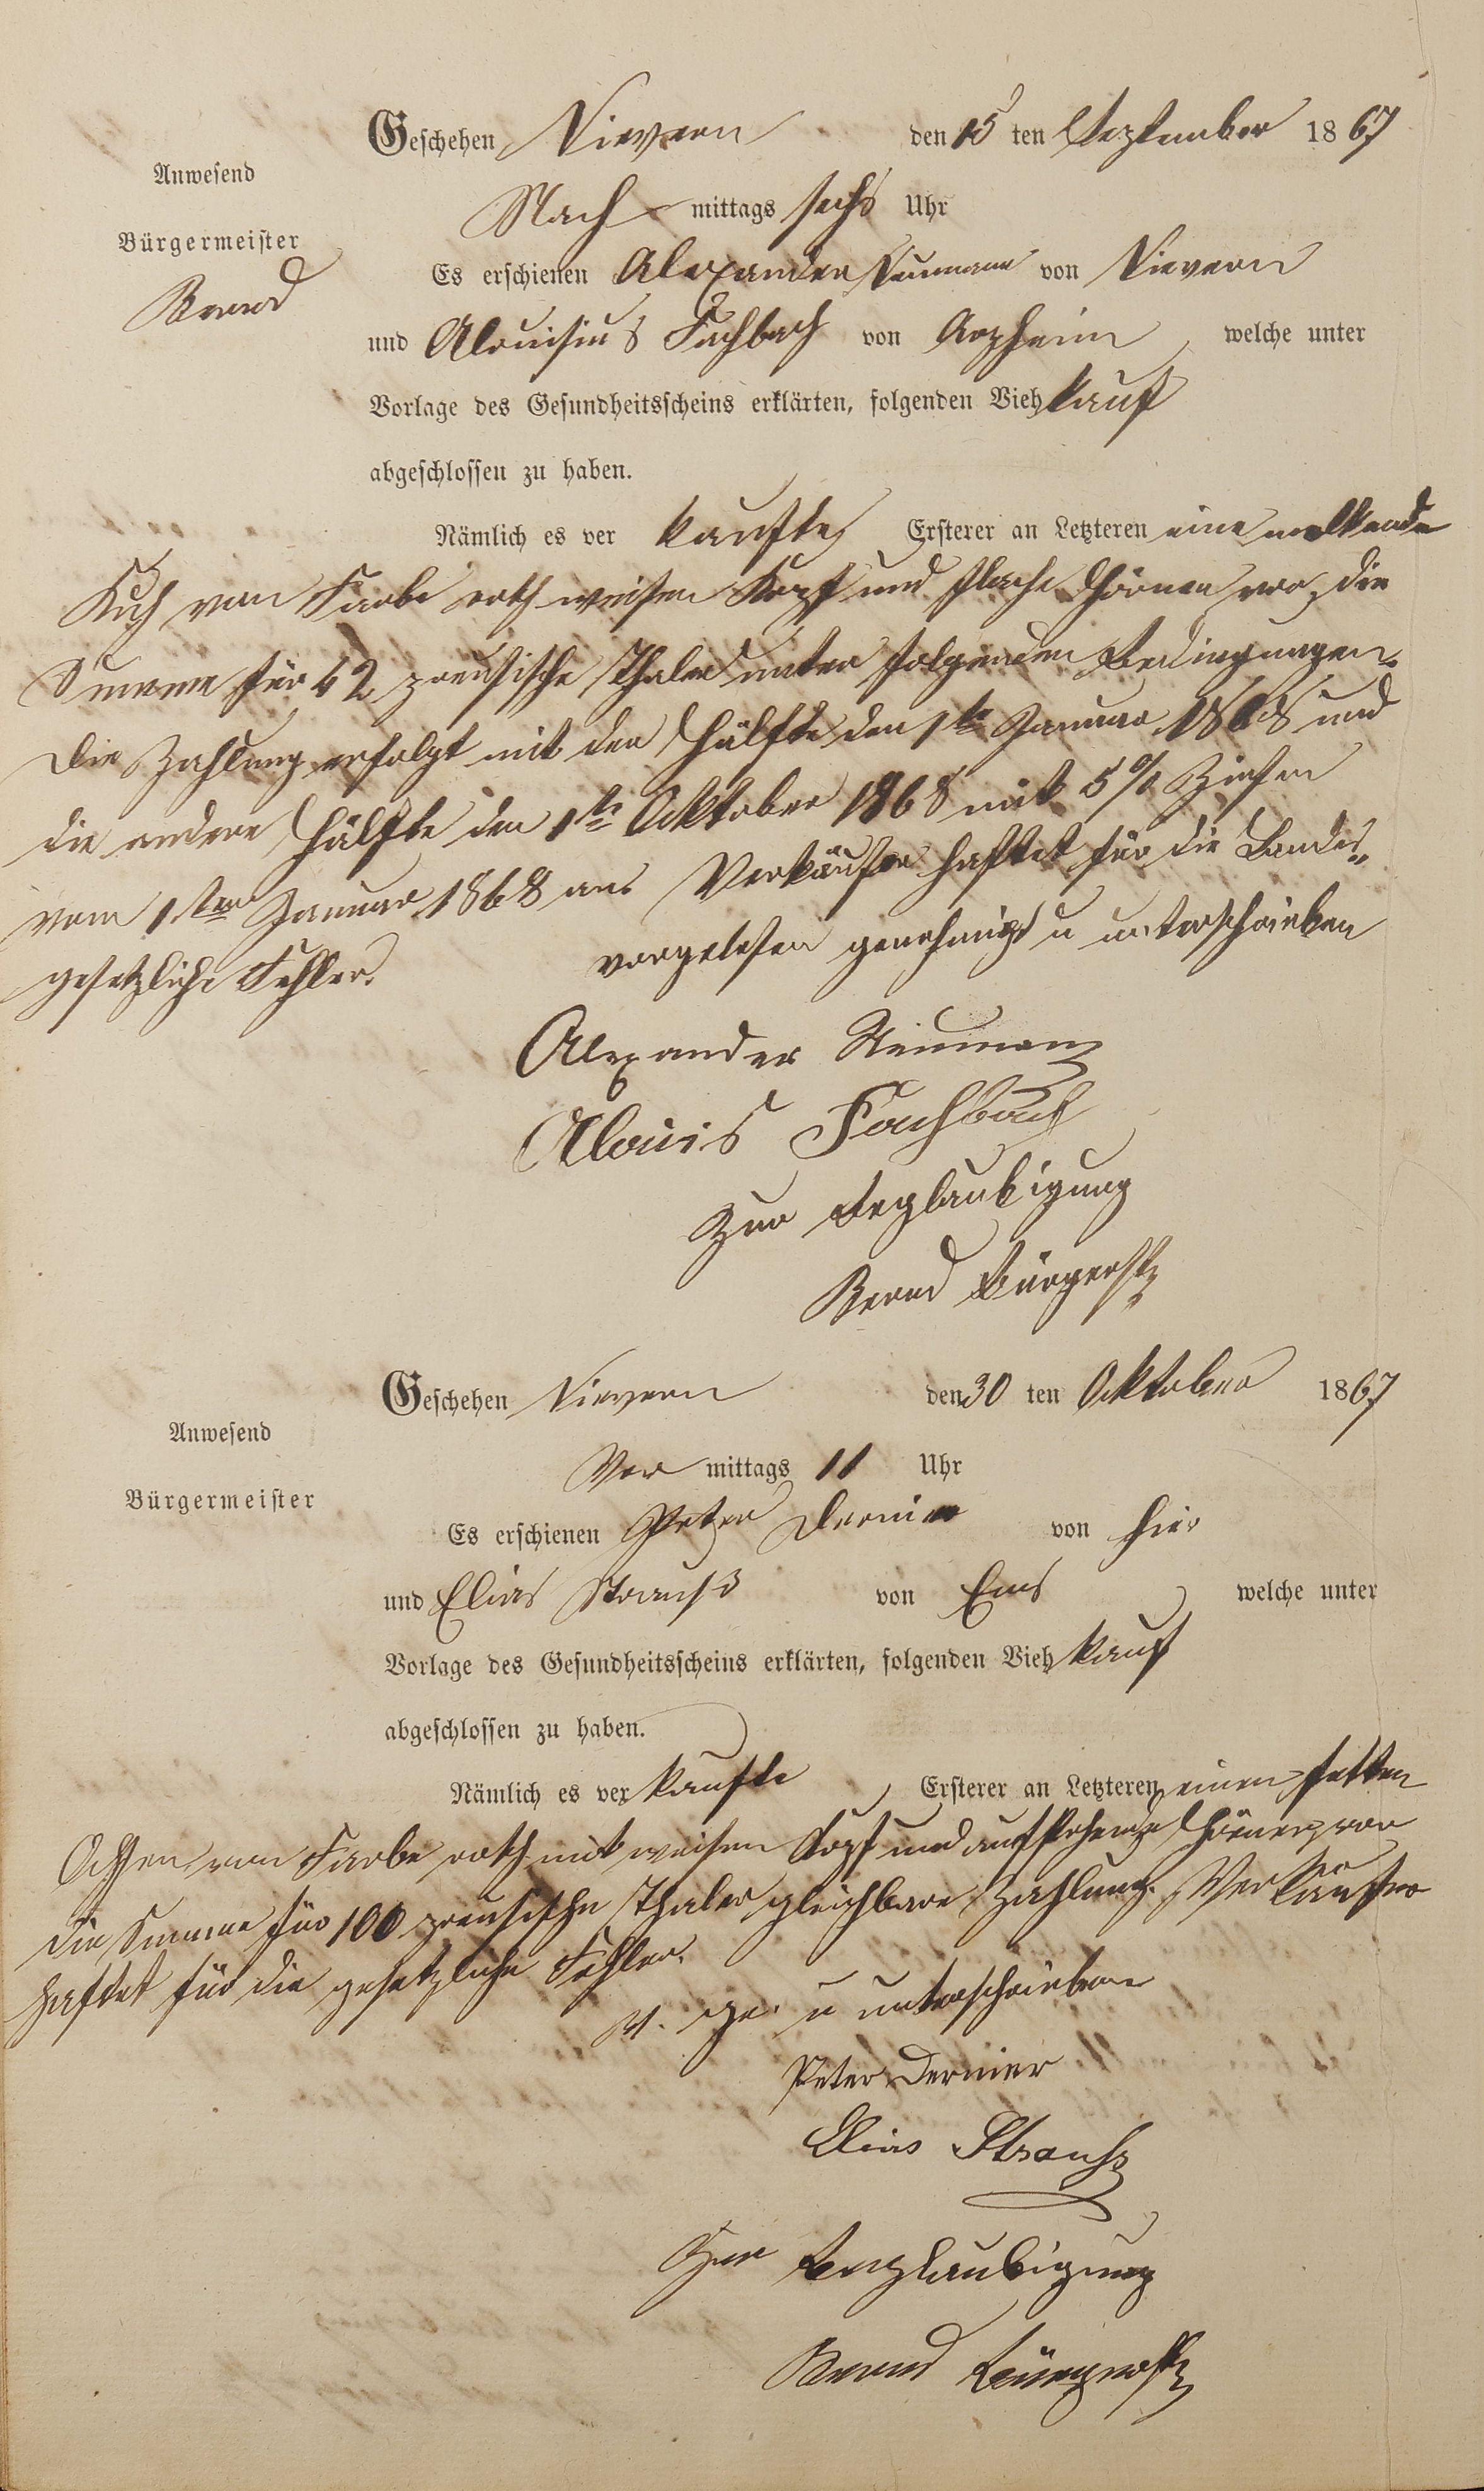 Geschehen Nievern den 15 ten September 1867
Anwesend
Nach mittags sechs Uhr
Bürgermeister
Es erschienen Alexander Neumann von Nievern
und Alouisius Fachbach von Arzheim, welche unter
Vorlage des Gesundheitsscheins erklärten, folgenden Viehkauf
abgeschlossen zu haben.
Nämlich es ver kaufte Ersterer an Letzteren eine melkende
Kuh von Farbe roth weisen Kopf und flache Hörner vor die
Summe für 42 preusische Thaler unter folgenden Bedingungen.
Die Zahlung erfolgt mit der Hälfte den 1te Januar 1868 und
die andere Hälfte den 1te Oktober 1868 mit 5% Zinsen
vom 1ten Januar 1868 an Verkäufer haftet für die Landes„
gesetzliche Fehler.
vorgelesen genehmigt u unterschrieben
Alexander Neumann
Alouis Fachbach
Zur Beglaubigung
Bürgerstr
Geschehen Nievern den 30 ten Oktober 1867
Anwesend
Vor mittags 11 Uhr
Bürgermeister
Es erschienen Peter Dernier von hier
und Elias Strauß von Ems, welche unter
Vorlage des Gesundheitsscheins erklärten, folgenden Viehkauf
abgeschlossen zu haben.
Nämlich es ver kaufte, Ersterer an Letzteren einen fetten
Ochsen von Farbe roth mit weisen Kopf und aufstehende Hörner vor
die Summe für 100 preusische Thaler gleichbare Zahlung. Verkäufer
haftet für die gesetzliche Fehler.
v. ge. u unterschrieben
Peter Dernier
Elias Strauß
Zur Beglaubigung
Bürgerstr